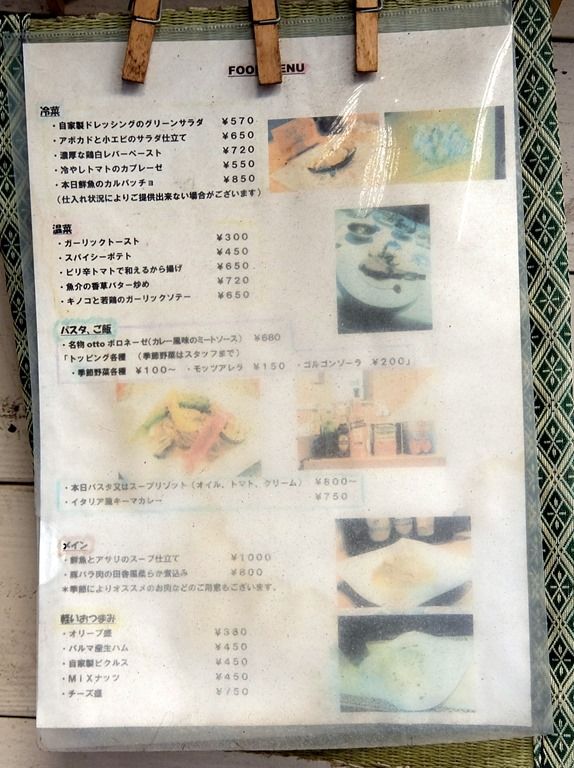 FOOD MENU
冷菜
・自家製ドレッシングのグリーンサラダ ¥570
・アボカドと小エビのサラダ仕立て ¥650
・濃厚な鶏白レバーペースト ¥720
・冷やしトマトのカプレーゼ ¥550
・本日鮮魚のカルパッチョ ¥850
(仕入れ状況によりご提供出来ない場合がございます)
温菜
・ガーリックトースト ¥300
・スパイシーポテト ¥450
・ピリ辛トマトで和えるから揚げ ¥650
・魚介の香草バター炒め ¥720
・キノコと若鶏のガーリックソテー ¥650
パスタ、ご飯
・名物 otto ボロネーゼ(カレー風味のミートソース) ¥680
「トッピング各種 (季節野菜はスタッフまで)
・季節野菜各種 ¥100〜 ・モッツアレラ ¥150 ・ゴルゴンゾーラ ¥200」
・本日パスタ又はスープリゾット(オイル、トマト、クリーム) ¥800〜
・イタリア風キーマカレー ¥750
メイン
・鮮魚とアサリのスープ仕立て ¥1000
・豚バラ肉の田舎風柔らか煮込み ¥800
*季節によりオススメのお肉などのご用意もございます。
軽いおつまみ
・オリーブ盛 ¥380
・パルマ産生ハム ¥450
・自家製ピクルス ¥450
・MIXナッツ ¥450
・チーズ盛 ¥750